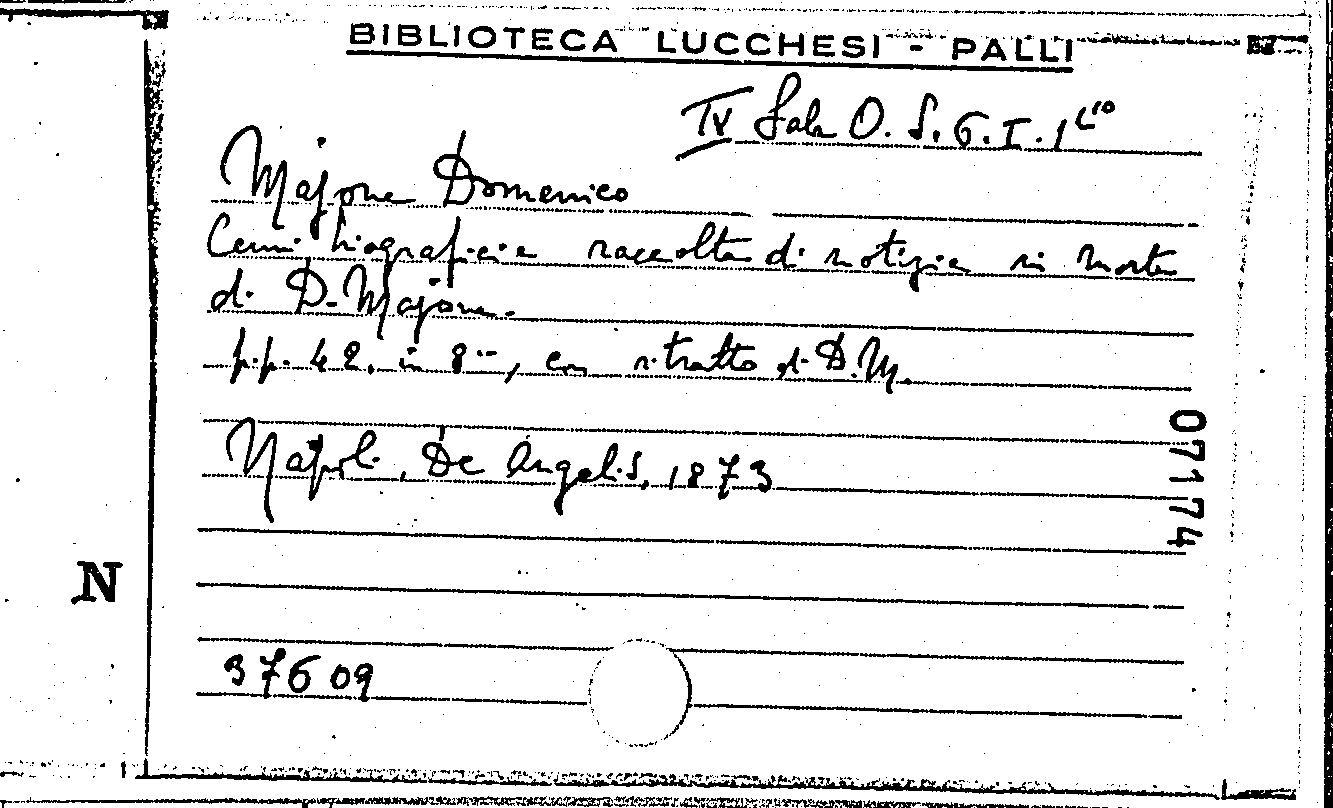 BIBLIOTECA LUCCHESI - PALLI
IV Sala O. S. 6. I. 1
Majone Domenico
Cenni biografici e raccolta di notizie in morte
di D. Majone.
p.p. 42. in 8, con ritratto di D. M.
Napoli, De Angelis, 1873
071174
N
37609